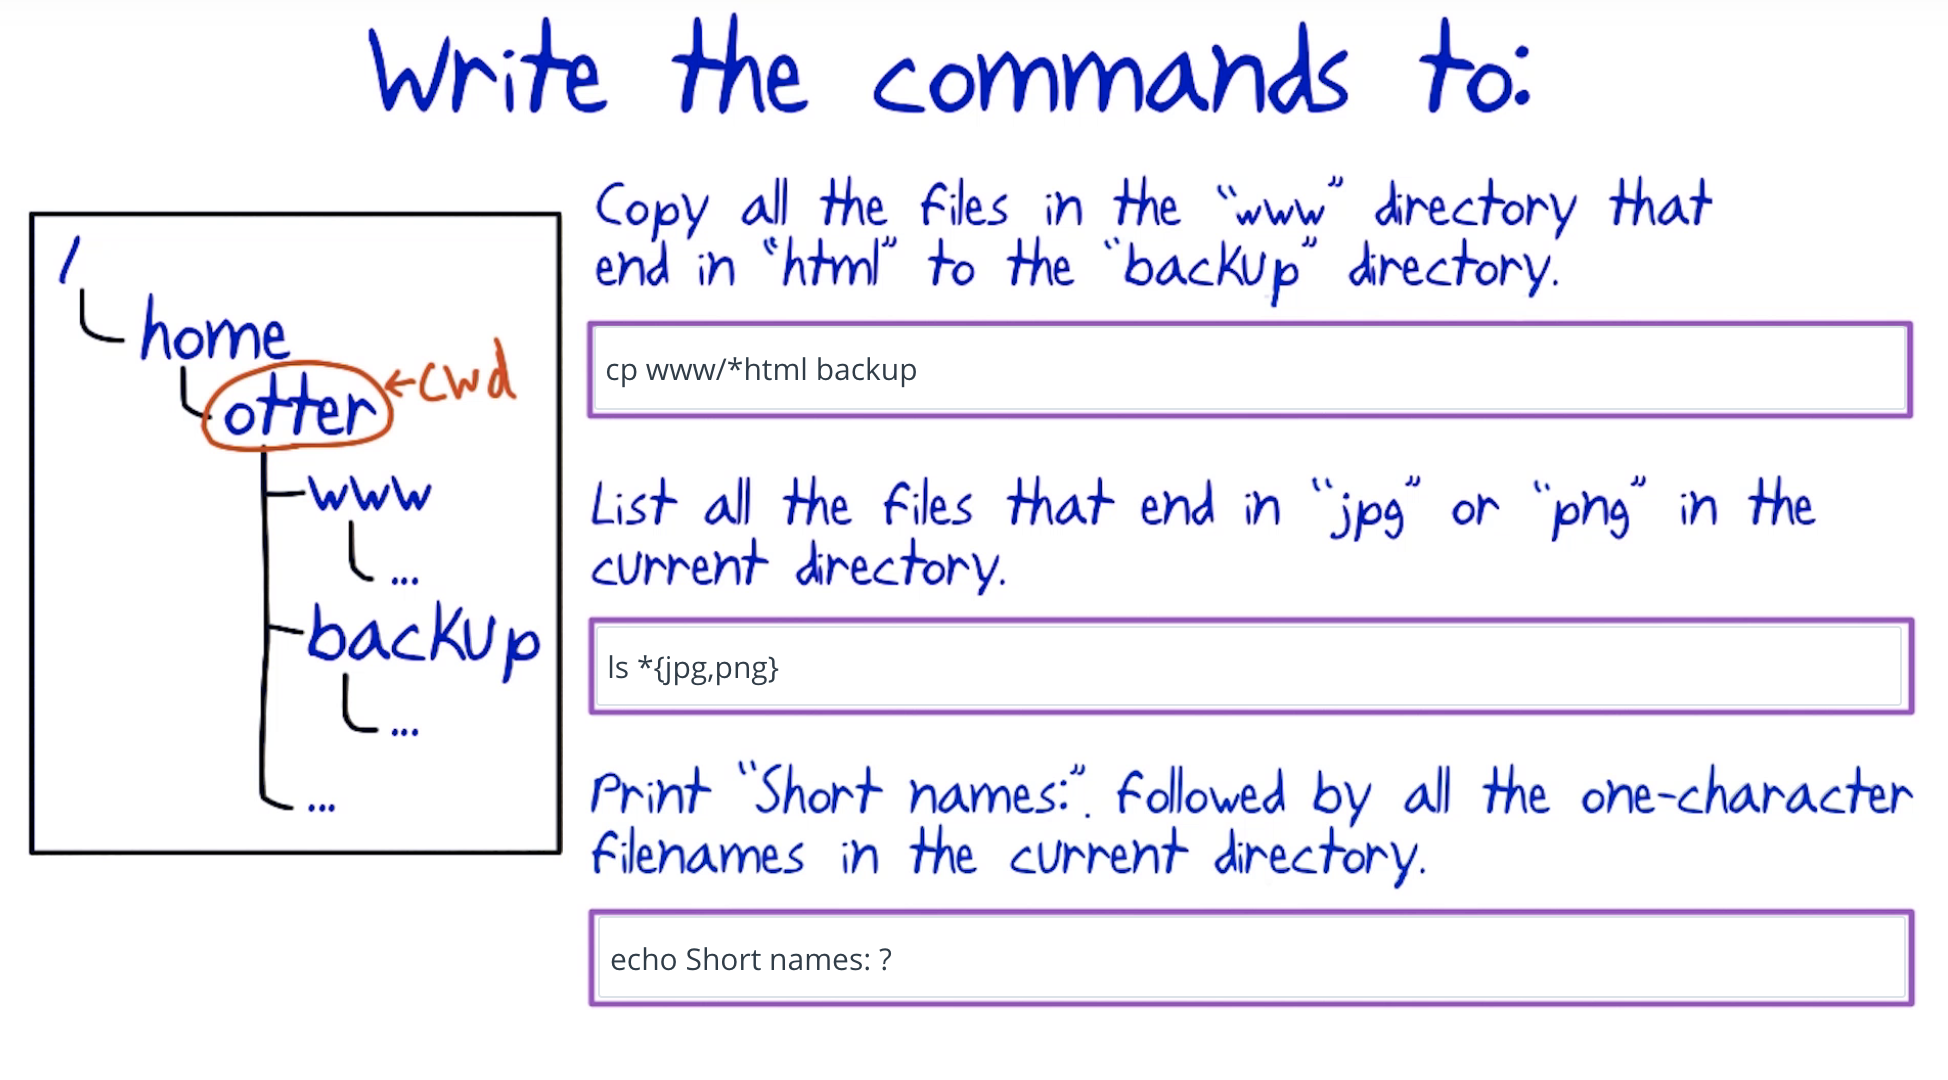 Write the commands to:
Copy all the files in the "www" directory that
end in "html" to the "backup" directory.
cp www/*html backup
List all the files that end in "jpg" or "png" in the
current directory.
ls *{jpg,png}
Print "Short names:". followed by all the one-character
filenames in the current directory.
echo Short names: ?
/
home
otter ←cwd
www
...
backup
...
...